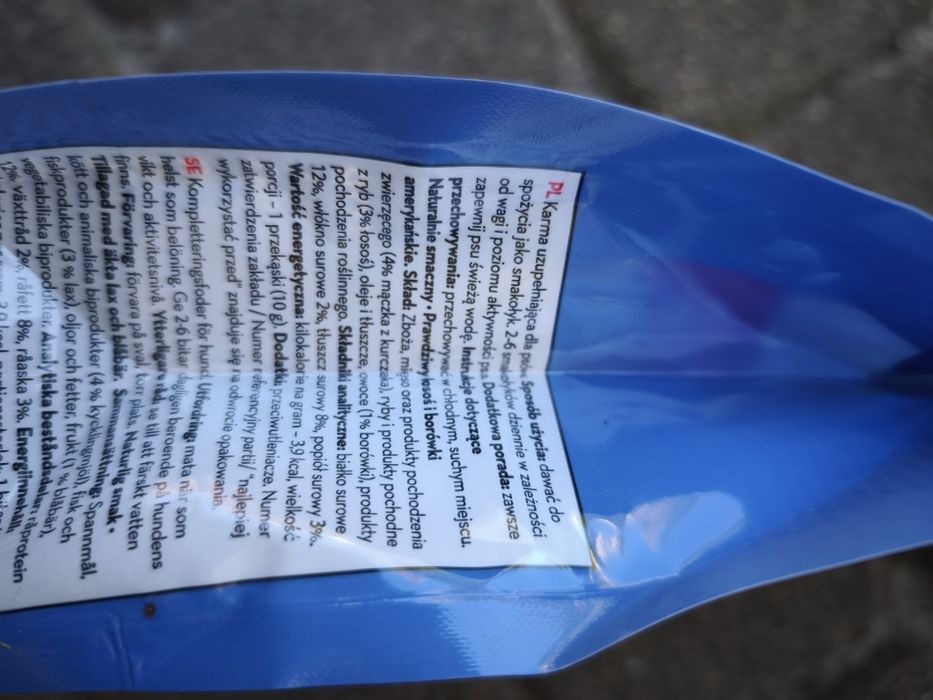 PL Karma uzupełniająca dla psów. Sposób użycia: dawać do
spożycia jako smakołyk. 2-6 smakołyków dziennie w zależności
od wagi i poziomu aktywności psa. Dodatkowa porada: zawsze
zapewnij psu świeżą wodę. Instrukcje dotyczące
przechowywania: przechowywać w chłodnym, suchym miejscu.
Naturalnie smaczny • Prawdziwy łosoś i borówki
amerykańskie. Skład: Zboża, mięso oraz produkty pochodzenia
zwierzęcego (4% mączka z kurczaka), ryby i produkty pochodne
z ryb (3% łosoś), oleje i tłuszcze, owoce (1% borówki), produkty
pochodzenia roślinnego. Składniki analityczne: białko surowe
12%, włókno surowe 2%, tłuszcz surowy 8%, popiół surowy 3%.
Wartość energetyczna: kilokalorie na gram – 3,9 kcal, wielkość
porcji – 1 przekąski (10 g). Dodatki: przeciwutleniacze. Numer
zatwierdzenia zakładu / Numer referencyjny partii/ "najlepiej
wykorzystać przed" znajduje się na odwrocie opakowania.
SE Kompletteringsfoder för hund Utfodring: mata när som
helst som belöning. Ge 2-6 bitar dagligen beroende på hundens
vikt och aktivitetsnivå. Ytterligare råd: se till att färskt vatten
finns. Förvaring: förvara på sval, torr plats. Naturlig smak •
Tillagad med äkta lax och blåbär. Sammansättning: Spannmål,
kött och animaliska biprodukter (4 % kycklingmjöl), fisk och
fiskprodukter (3 % lax), oljor och fetter, frukt (1 % blåbär),
vegetabiliska biprodukter. Analytiska beståndsdelar: råprotein
12%, växttråd 2%, råfett 8%, råaska 3%. Energiinnehåll: